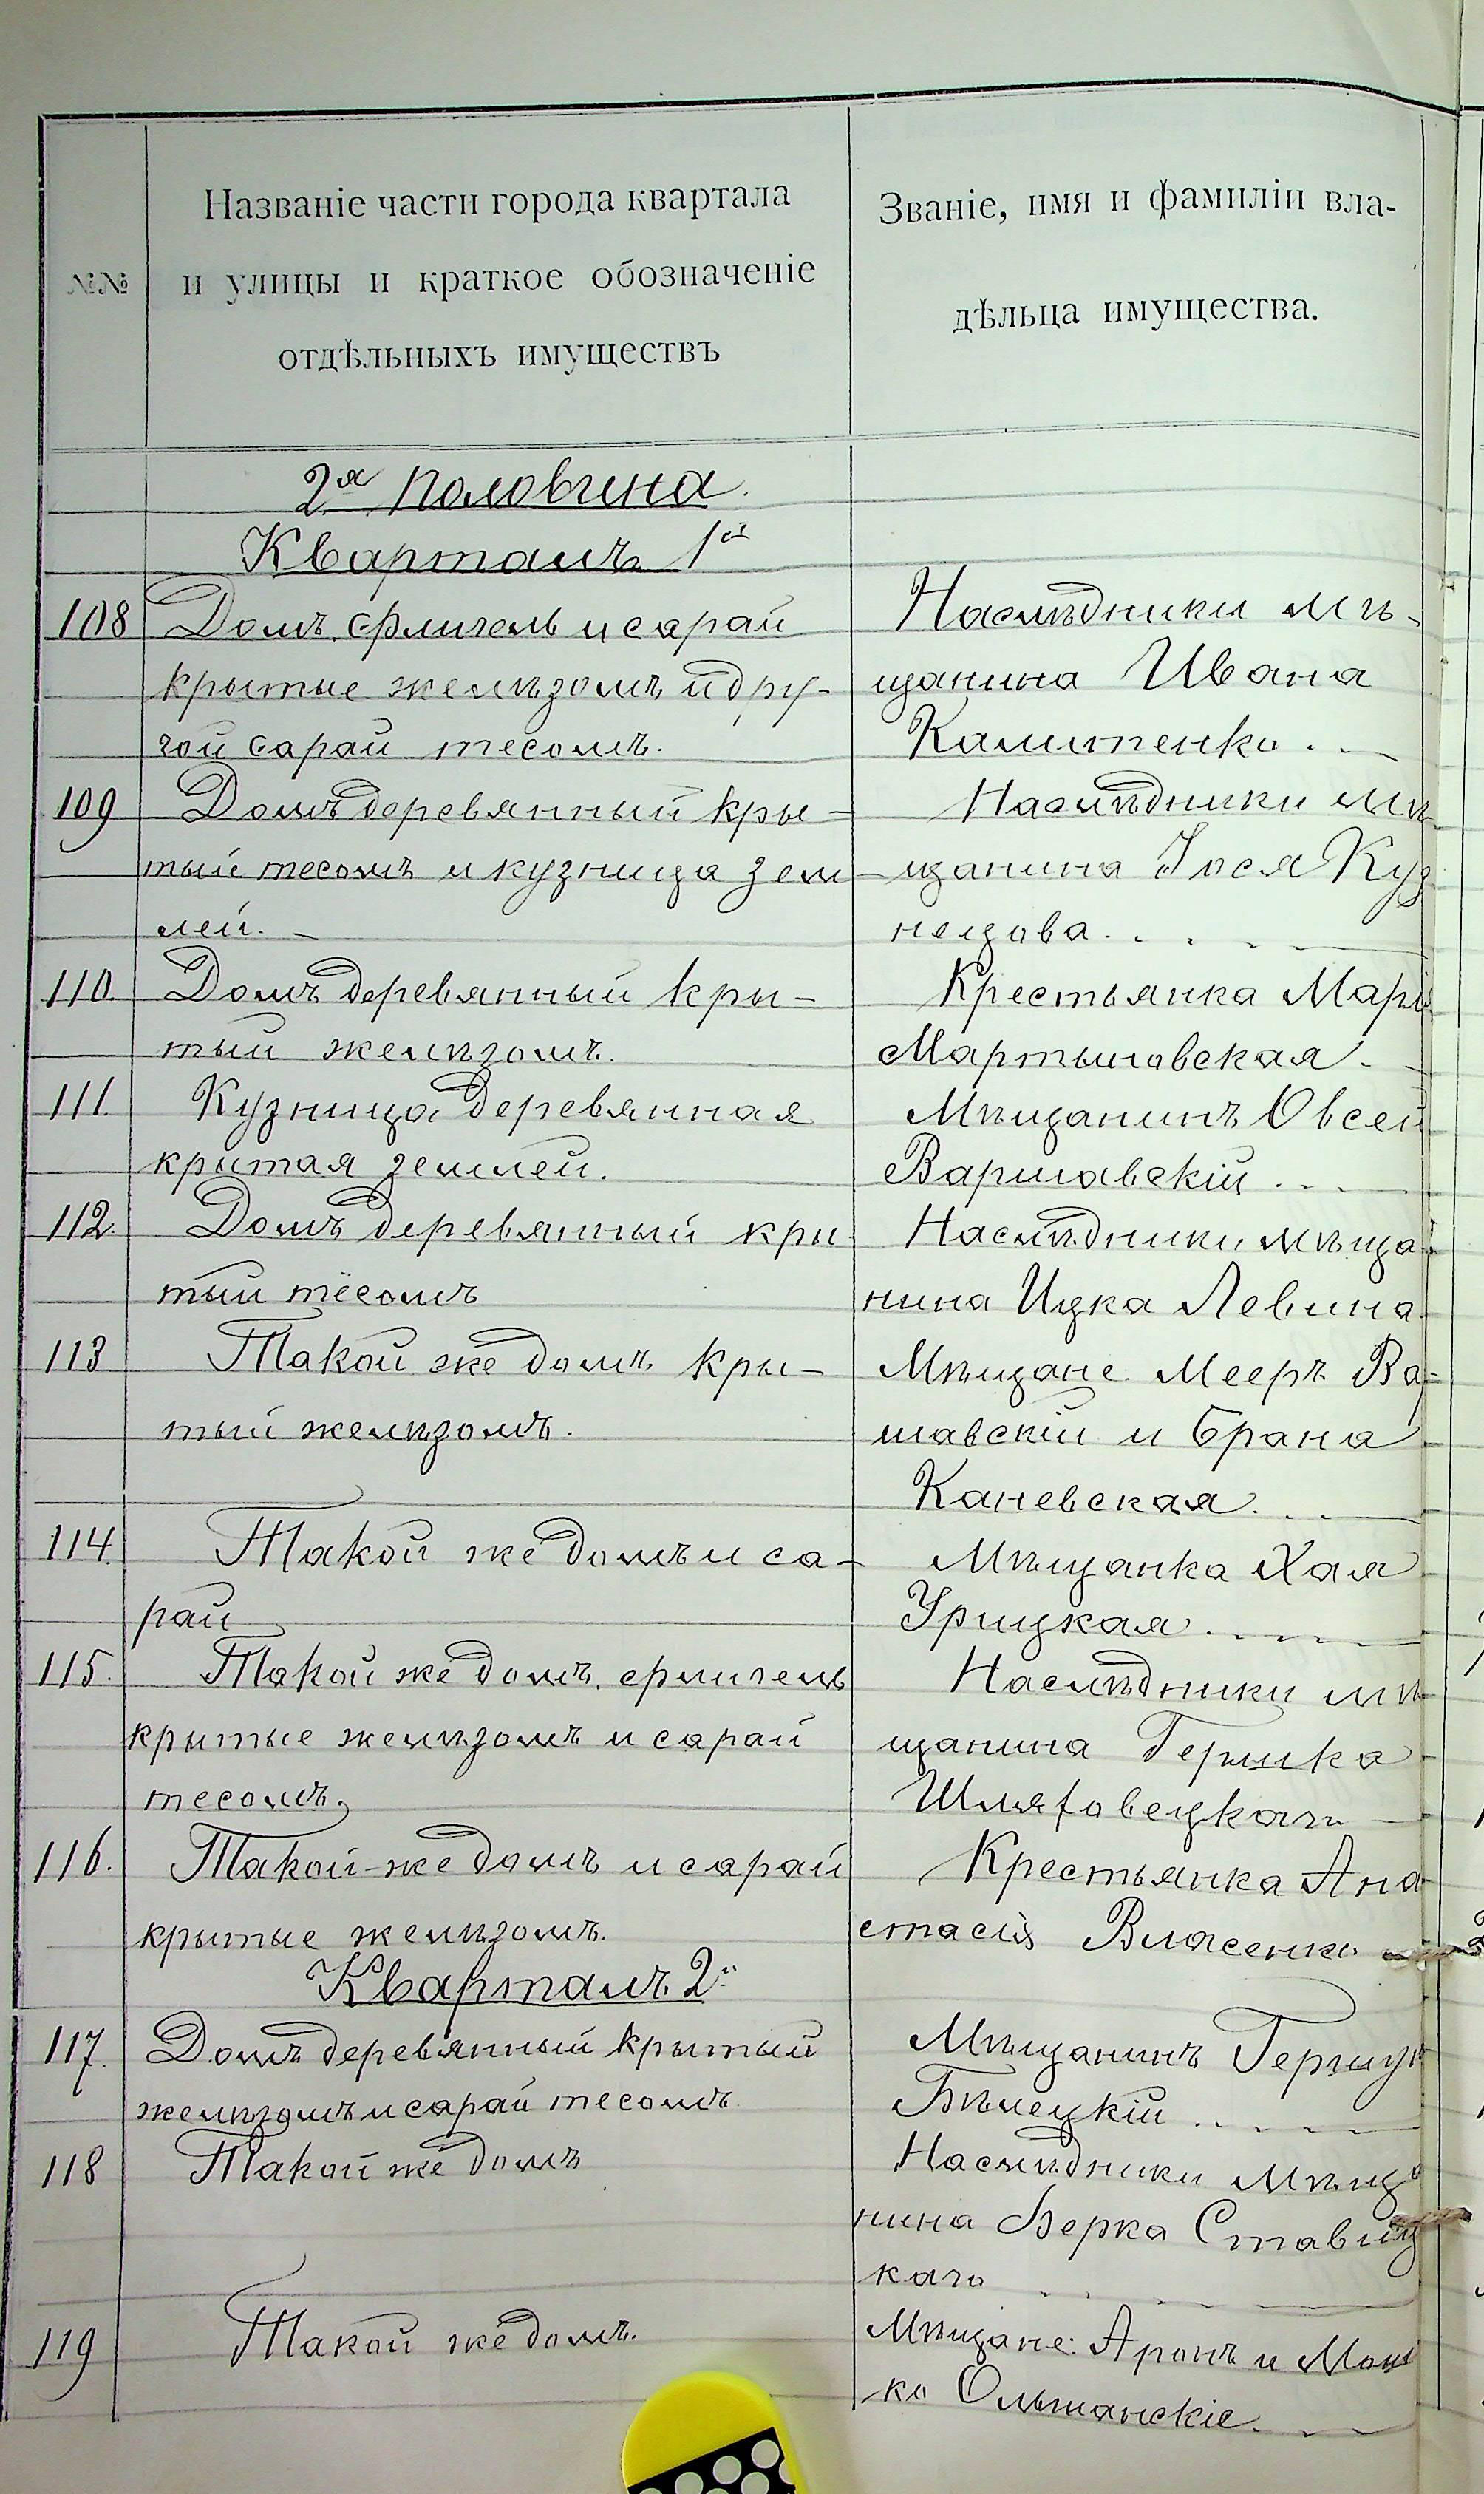 №№
Названіе части города квартала
и улицы и краткое обозначеніе
отдѣльныхъ имуществъ
Званіе, имя и фамиліи вла-
дѣльца имущества.
2я половина.
Кварталъ 1й
108 Домъ, флигель и сарай
крытые желѣзомъ и дру-
гой сарай тесомъ.
Наслѣдники мѣ-
щанина Ивана
Калитенко
109 Домъ деревянный кры-
тый тесомъ и кузница зем-
лей.
Наслѣдники мѣ
щанина Іося Куз
нецова
110. Домъ деревянный кры-
тый желѣзомъ.
Крестьянка Марія
Мартыновская
111. Кузница деревянная
крытая землей.
Мѣщанинъ Овсей
Варшавскій
112. Домъ деревянный кры
тый тесомъ
Наслѣдники мѣща
нина Ицка Левина
113 Такой же домъ кры-
тый желѣзомъ.
Мѣщане Мееръ Ва
шавскій и Брана
Каневская
114. Такой же домъ и са-
рай
Мѣщанка Хая
Урицкая
115. Такой же домъ, флигель
крытые желѣзомъ и сарай
тесомъ.
Наслѣдники мѣ
щанина Гершка
116. Такой-же домъ и сарай
крытые желѣзомъ.
Крестьянка Ана
стасія Власенко
Кварталъ 2й
117. Домъ деревянный крытый
желѣзомъ и сарай тесомъ
Мѣщанинъ
Бѣлецкій
118 Такой же домъ
Наслѣдники мѣща
нина Берка Ставиц
каго
119 Такой же домъ.
Мѣщане: Аронъ и Мош
ко Ольшанскіе